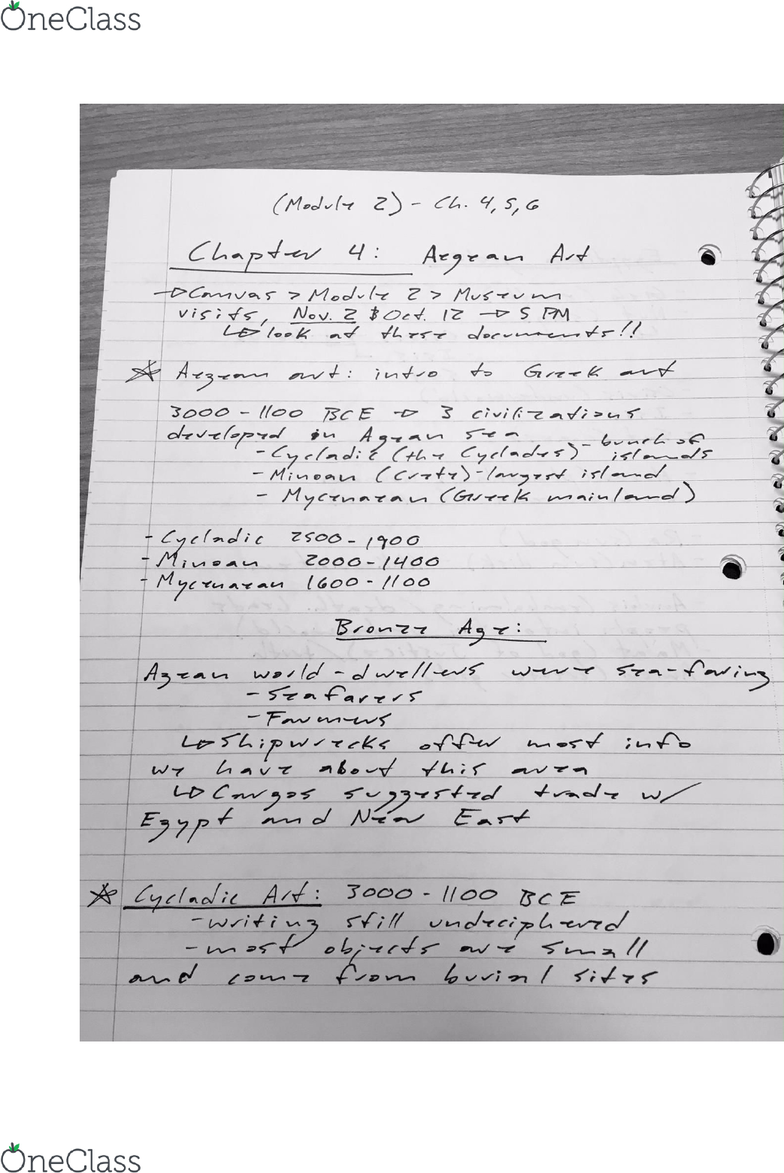 OneClass
(Module 2) - Ch. 4, 5, 6
Chapter 4: Aegean Art
→ Canvas > Module 2 > Museum
visits, Nov. 2 & Oct. 12 → 5 PM
↳ look at these documents!!
☆ Aegean art: intro to Greek art
3000 - 1100 BCE → 3 civilizations
developed in Agean sea
- Cycladic (the Cyclades) - bunch of islands
- Minoan (Crete) - largest island
- Mycenaean (Greek mainland)
- Cycladic 2500 - 1900
- Minoan 2000 - 1400
- Mycenaean 1600 - 1100
Bronze Age:
Agean world - dwellers were sea-faring
- Seafarers
- Farmers
↳ Shipwrecks offer most info
we have about this area
↳ Cargos suggested trade w/
Egypt and Near East
☆ Cycladic Art: 3000 - 1100 BCE
- writing still undeciphered
- most objects are small
and come from burial sites
OneClass